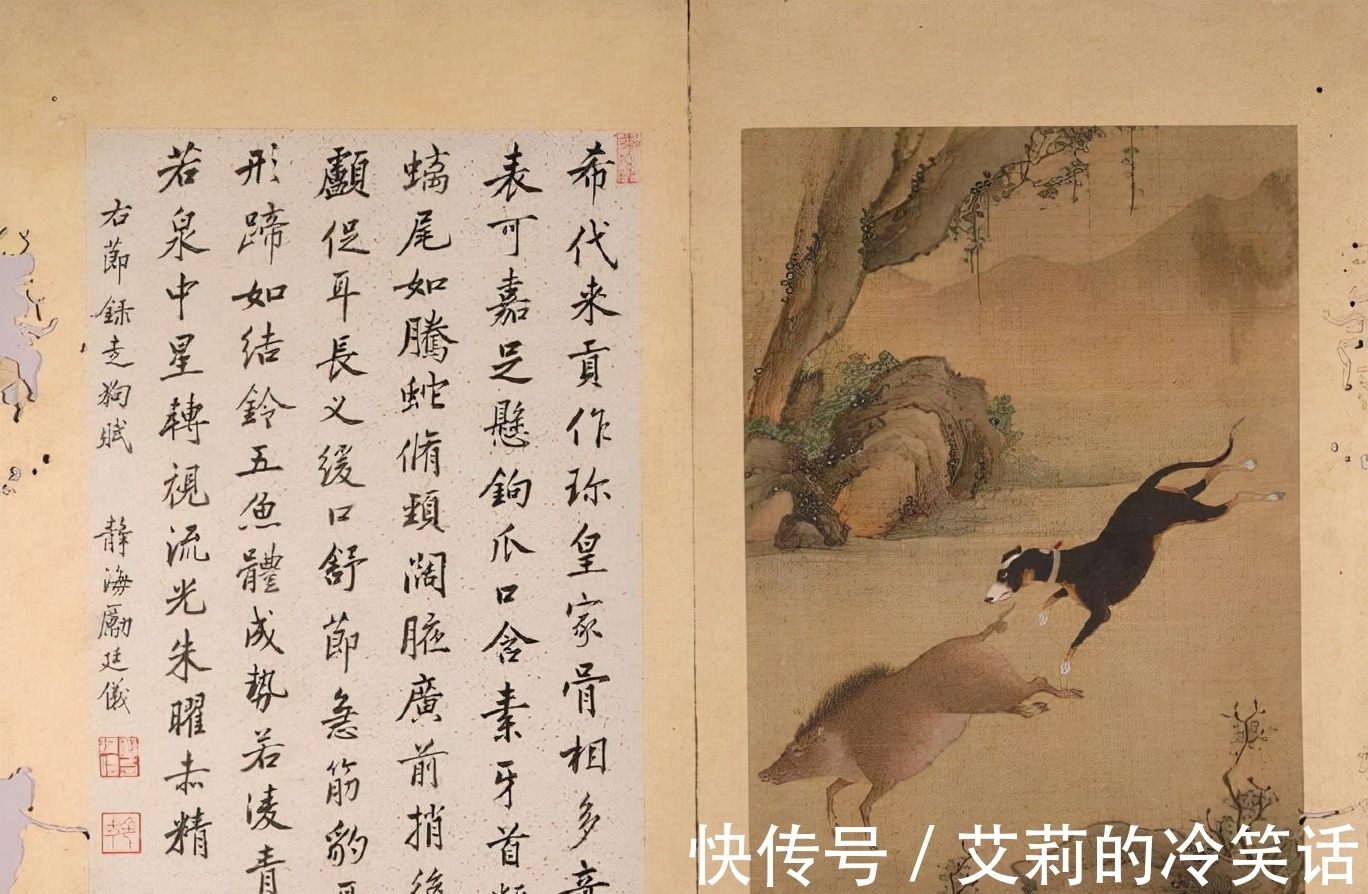 希代来貢作珍皇家骨相多奇
表可嘉足懸鉤爪口含素牙首
螭尾如騰蛇脩頸闊腋廣前捎後
顱促耳長义緩口舒節急筋豹
形蹄如結鈴五魚體成勢若凌青
若泉中星轉視流光朱曜赤精
右節錄走狗賦 静海勵廷儀
快传号 / 艾莉的冷笑话